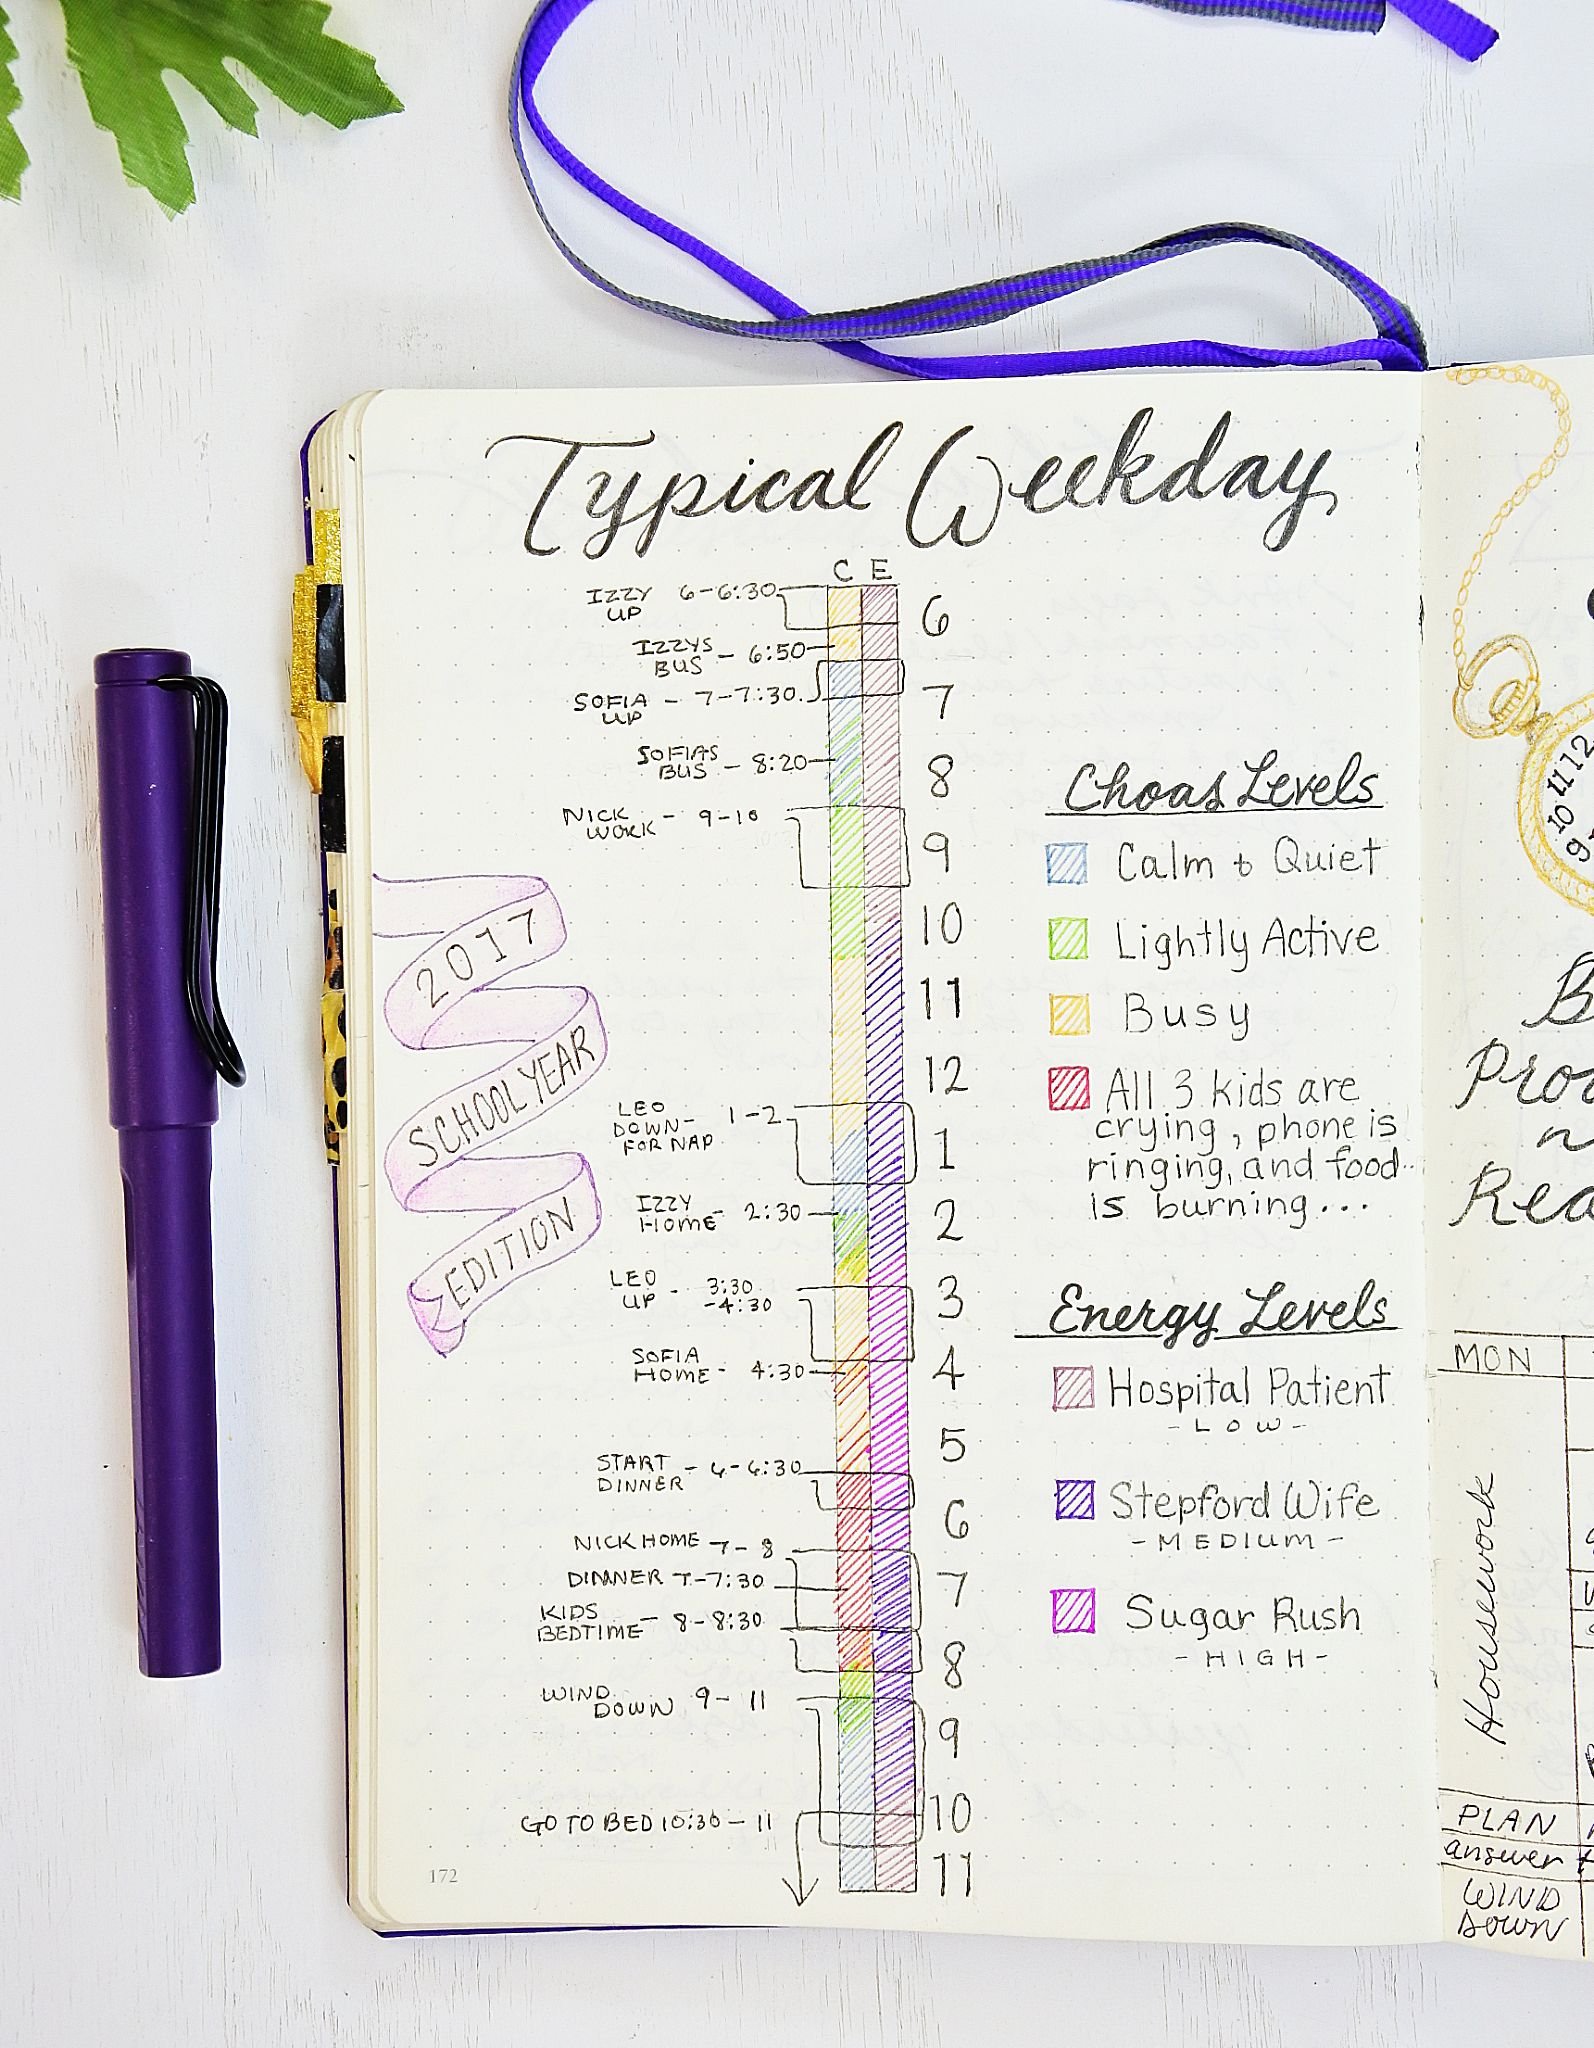 Typical Weekday
C E
IZZY 6-6:30
UP
IZZYS
BUS - 6:50
SOFIA - 7-7:30
UP
SOFIAS
BUS - 8:20
NICK - 9-10
WORK
LEO
DOWN- 1-2
FOR NAP
IZZY
HOME - 2:30
LEO
UP - 3:30
-4:30
SOFIA
HOME - 4:30
START - 6-6:30
DINNER
NICK HOME 7-8
DINNER 7-7:30
KIDS
BEDTIME - 8-8:30
WIND
DOWN 9-11
GO TO BED 10:30-11
6
7
8
9
10
11
12
1
2
3
4
5
6
7
8
9
10
11
2017
SCHOOL YEAR
EDITION
Choas Levels
Calm & Quiet
Lightly Active
Busy
All 3 kids are
crying, phone is
ringing, and food
is burning...
Energy Levels
Hospital Patient
-LOW-
Stepford Wife
-MEDIUM-
Sugar Rush
-HIGH-
172
12
11
10
9
MON
Housework
PLAN
answer
WIND
DOWN